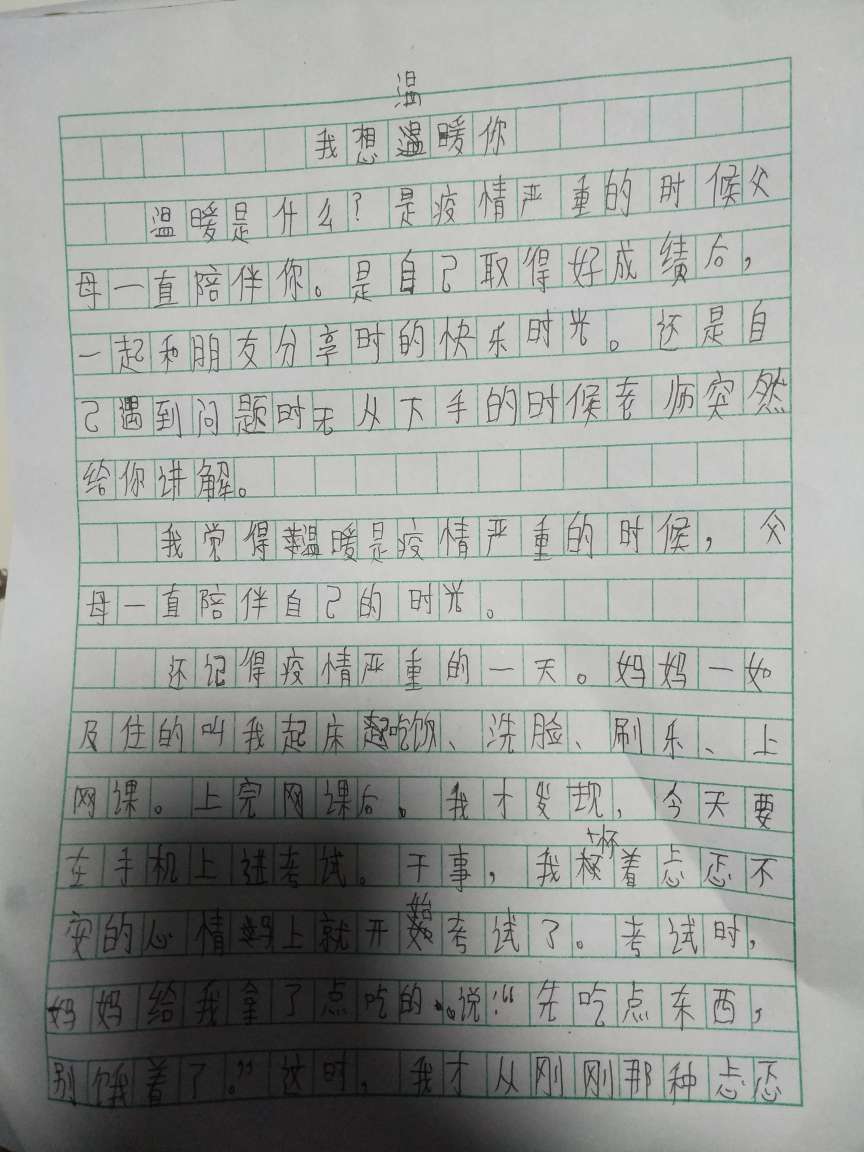 温
我想温暖你
温暖是什么？是疫情严重的时候父
母一直陪伴你。是自己取得好成绩后，
一起和朋友分享时的快乐时光。还是自
己遇到问题时无从下手的时候老师突然
给你讲解。
我觉得温暖是疫情严重的时候，父
母一直陪伴自己的时光。
还记得疫情严重的一天。妈妈一如
及住的叫我起床吃饭、洗脸、刷乐、上
网课。上完网课后。我才发现，今天要
在手机上进考试。干事，我怀着忐忑不
安的心情马上就开始考试了。考试时，
妈妈给我拿了点吃的。说：“先吃点东西，
别饿着了。”这时，我才从刚刚那种忐忑